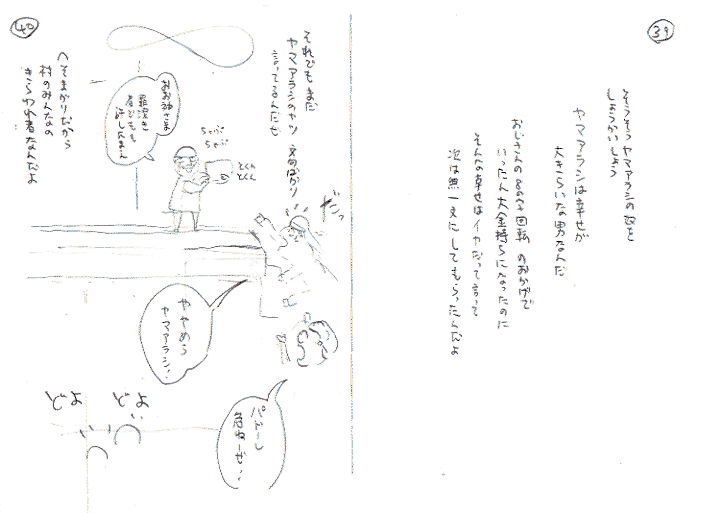 39
そうそうヤマアラシの話を
しょうかいしよう
ヤマアラシは幸せが
大きらいな男なんだ
おじさんの
いったん大金持ちになったのに
そんな幸せはイヤだって言って
次は無一文にしてもらったんだよ
それでもまだ
ヤマアラシのヤツ 文句ばかり
言ってるんだぜ
ちゃぷ
ちゃぷ
とくん
とくん
だっ
ややめろ
ヤマアラシ!
危ねーぜ!
どよ
どよ
40
へそまがりだから
村のみんなの
きらわれ者なんだよ